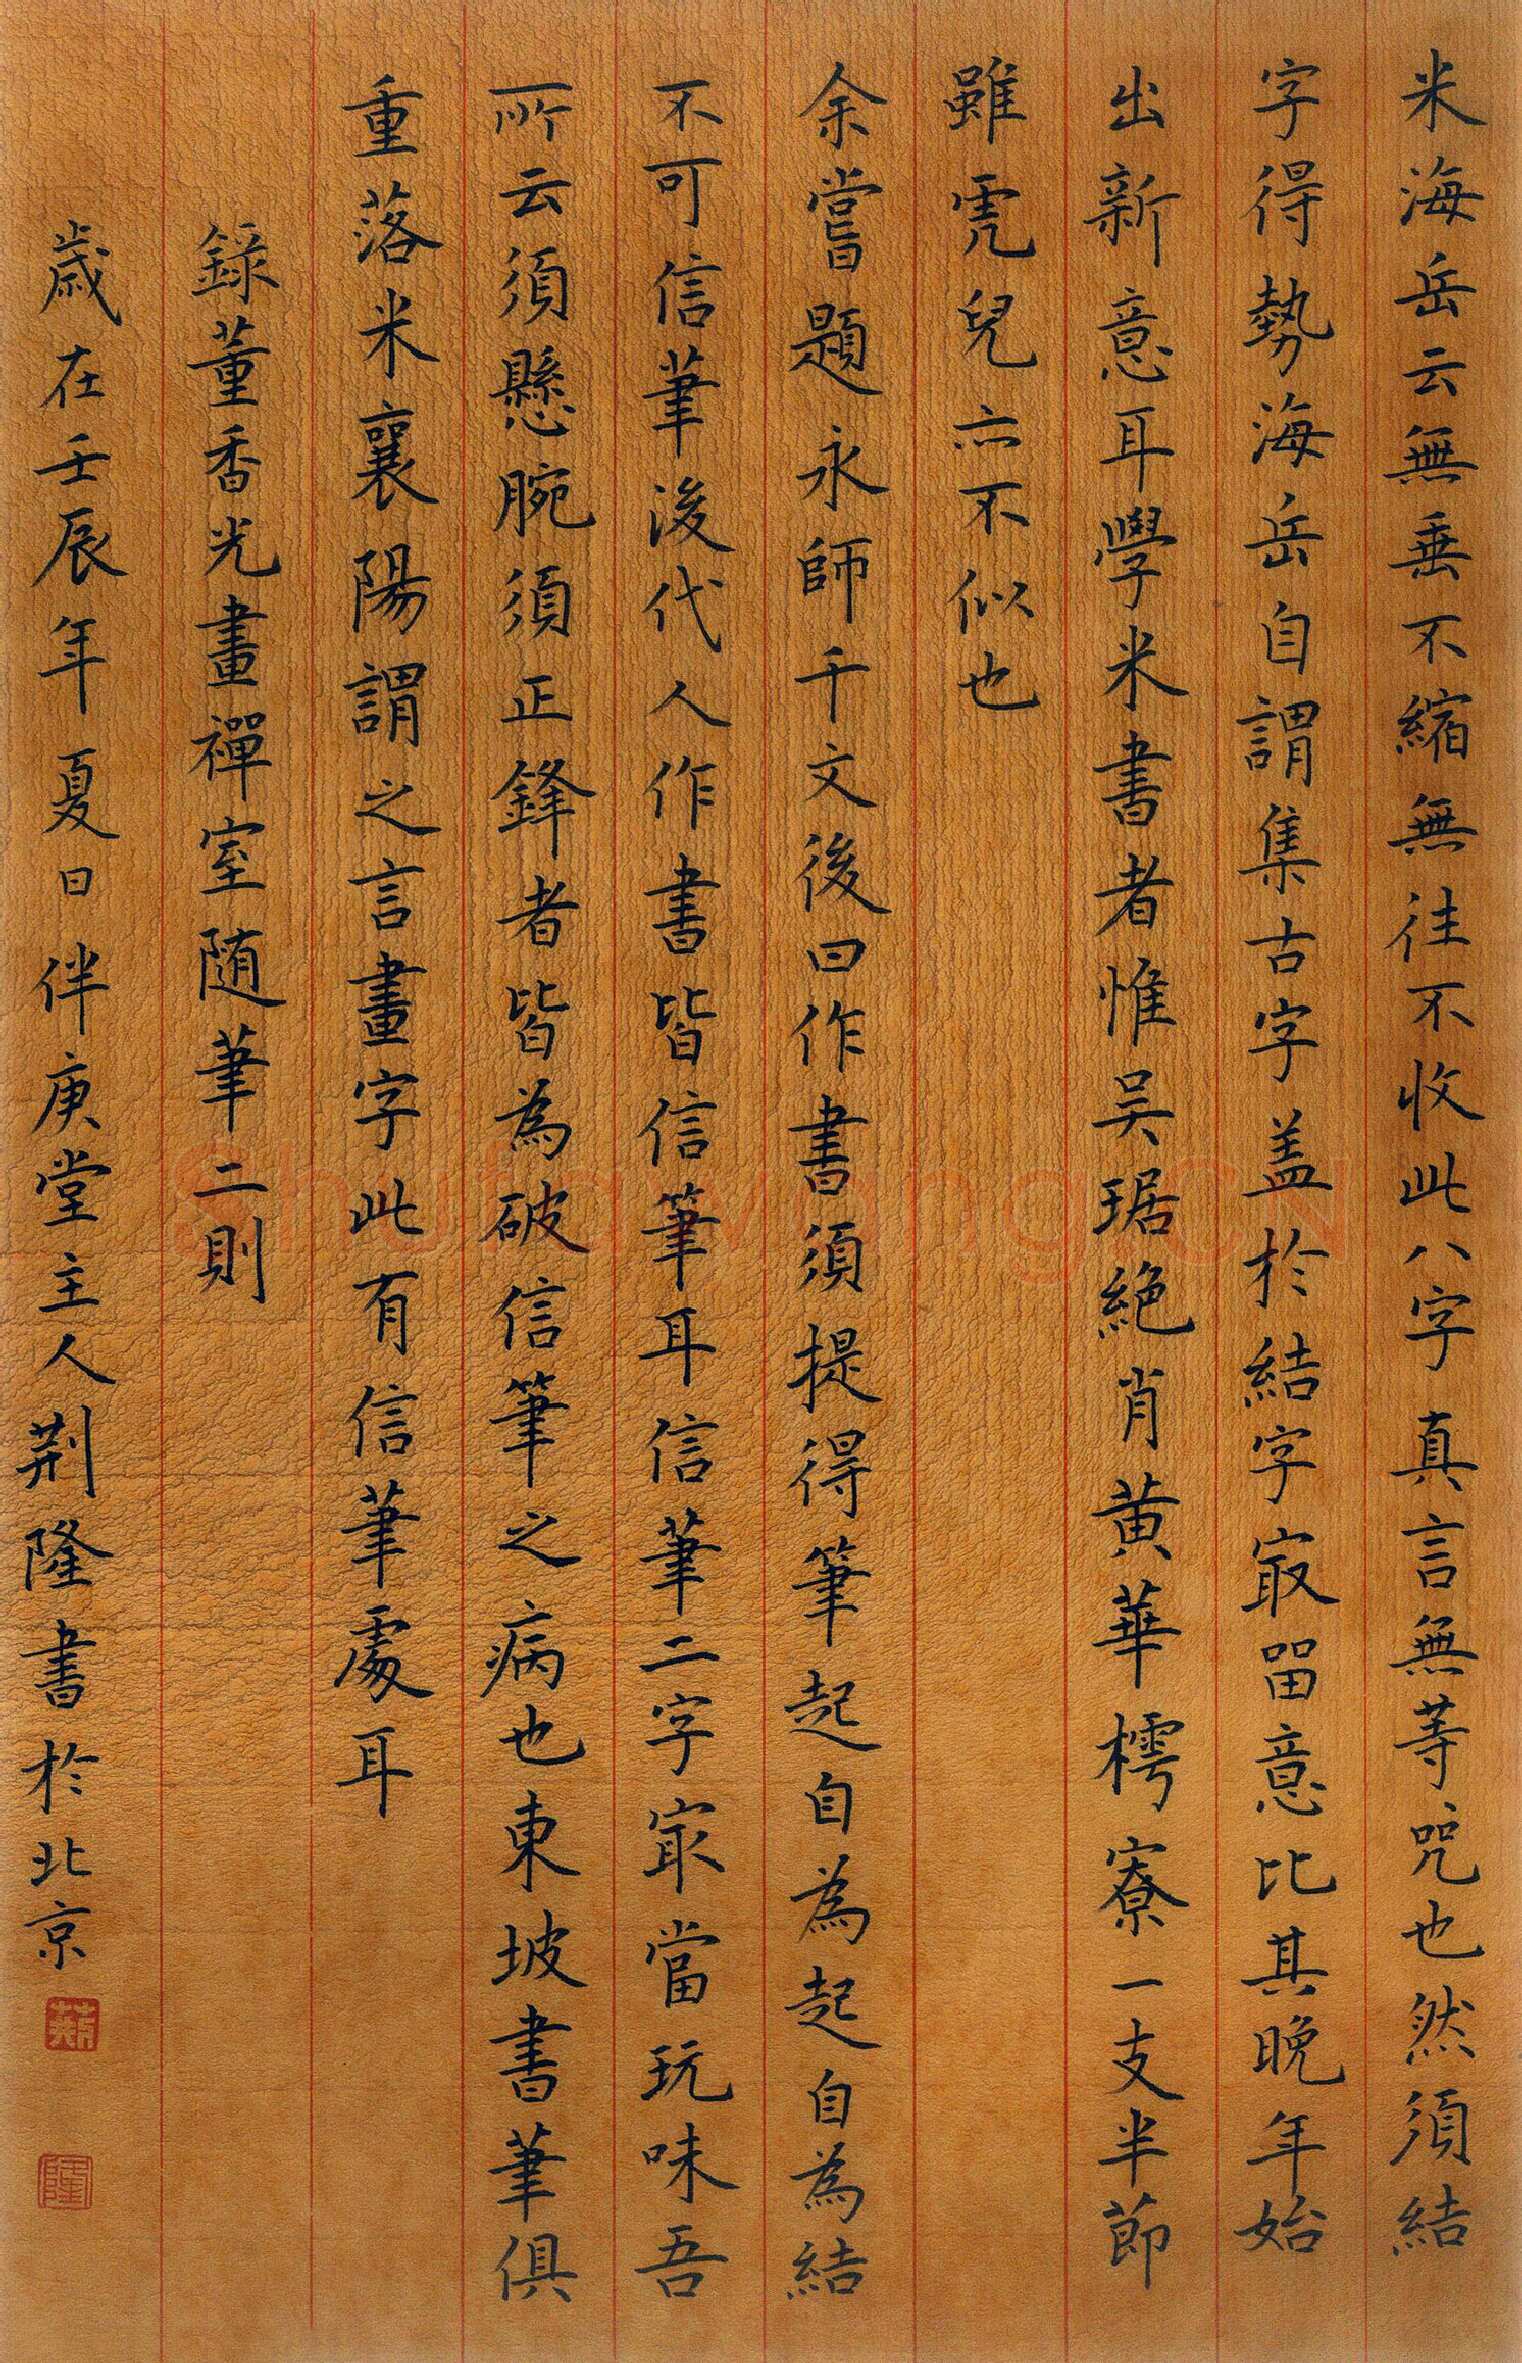 米海岳云無垂不縮無往不收此八字真言無等咒也然須結
字得勢海岳自謂集古字盖於結字㝡留意比其晚年始
出新意耳學米書者惟吴琚絶肖黄華樗寮一支半節
雖虎兒亦不似也
余嘗題永師千文後曰作書須提得筆起自為起自為結
不可信筆後代人作書皆信筆耳信筆二字㝡當玩味吾
所云須懸腕須正鋒者皆為破信筆之病也東坡書筆俱
重落米襄陽謂之言畫字此有信筆處耳
錄董香光畫禪室随筆二則
歲在壬辰年夏日伴庚堂主人荆隆書於北京
荊
隆
Shufawang.CN